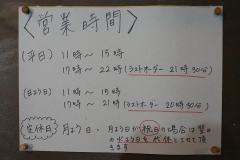 〈営業時間〉
(平日) 11時〜15時
17時〜22時(ラストオーダー 21時30分)
(日よう日) 11時〜15時
17時〜21時(ラストオーダー 20時30分)
定休日 月よう日・月よう日が祝日の場合は翌日
の火よう日を代休とさせて頂
きます